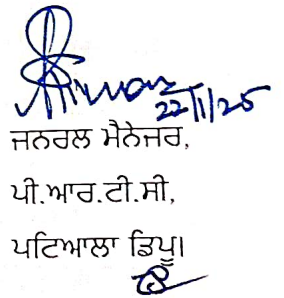 22/1/25
ਜਨਰਲ ਮੈਨੇਜਰ,
ਪੀ.ਆਰ.ਟੀ.ਸੀ,
ਪਟਿਆਲਾ ਡਿਪੂ।